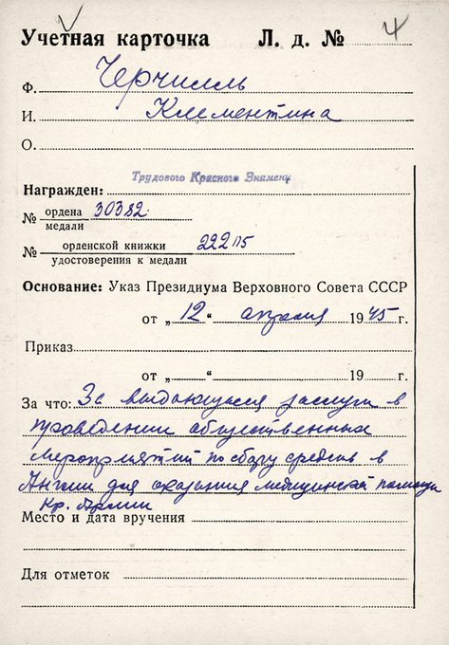 Учётная карточка Л. д. № 4
Ф. Черчилль
И. Клементина
О.
Трудового Красного Знамени
Награжден:
№ ордена 30382
медали
№ орденской книжки 222115
удостоверения к медали
Основание: Указ Президиума Верховного Совета СССР
от „12“ апреля 1945 г.
Приказ
от „ “ 19 г.
За что: За выдающиеся заслуги в
проведении общественных
мероприятий по сбору средств в
Англии для оказания медицинской помощи
Кр. Армии
Место и дата вручения
Для отметок